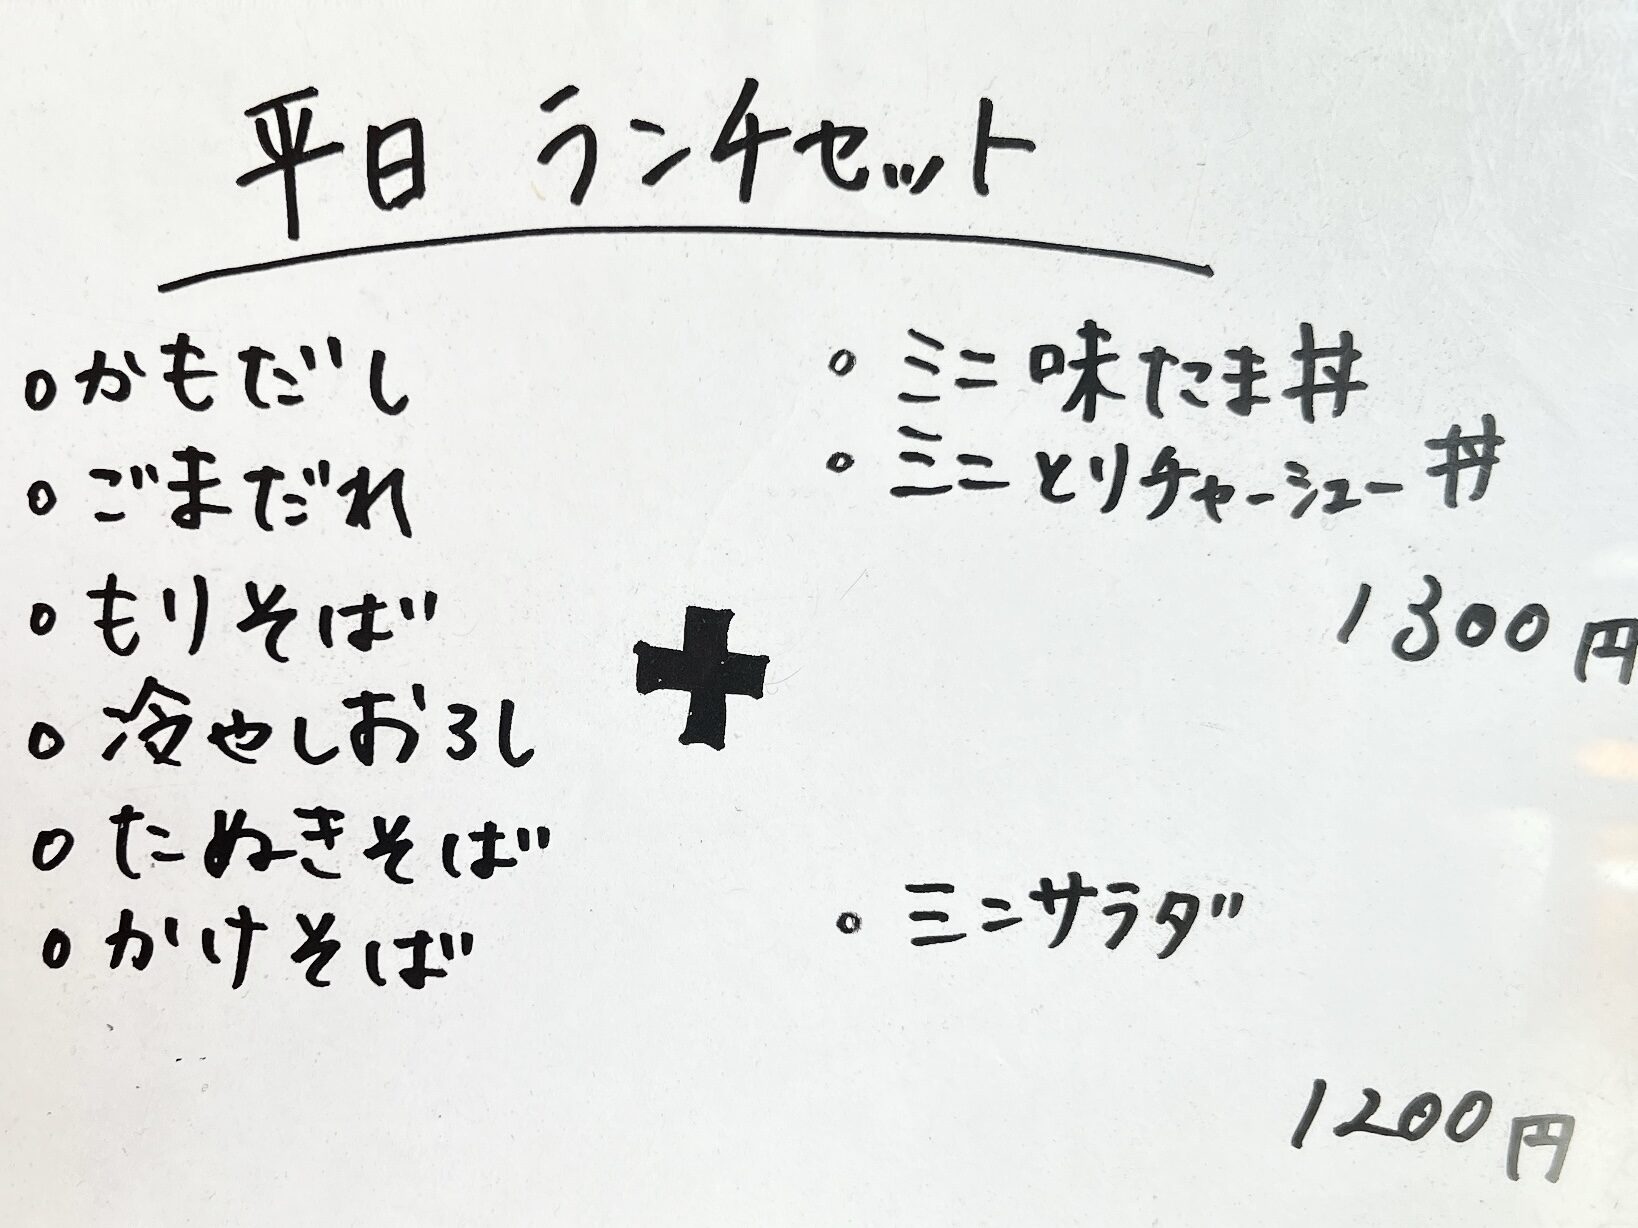 平日 ランチセット
。かもだし
。ごまだれ
。もりそば
。冷やしおろし
。たぬきそば
。かけそば
+
。ミニ味たま丼
。ミニとりチャーシュー丼
1300円
。ミニサラダ
1200円